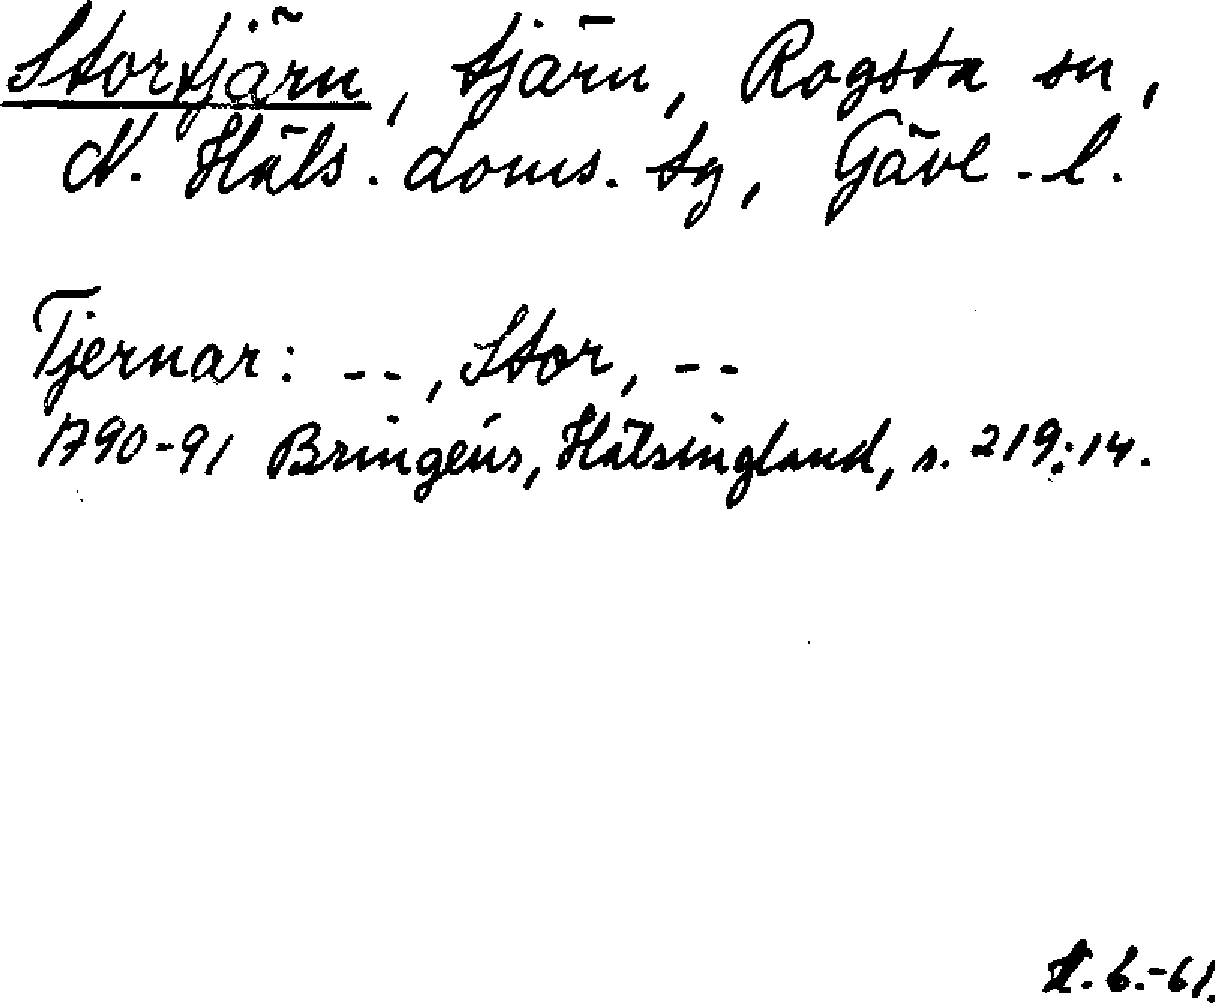 Stortjärn, tjärn, Rogsta sn,
N. Häls. doms. tg, Gävl.-l.
Tjernar: --, Stor, --
1790-91 Bringéus, Hälsingland, s. 219:14.
6.-61.